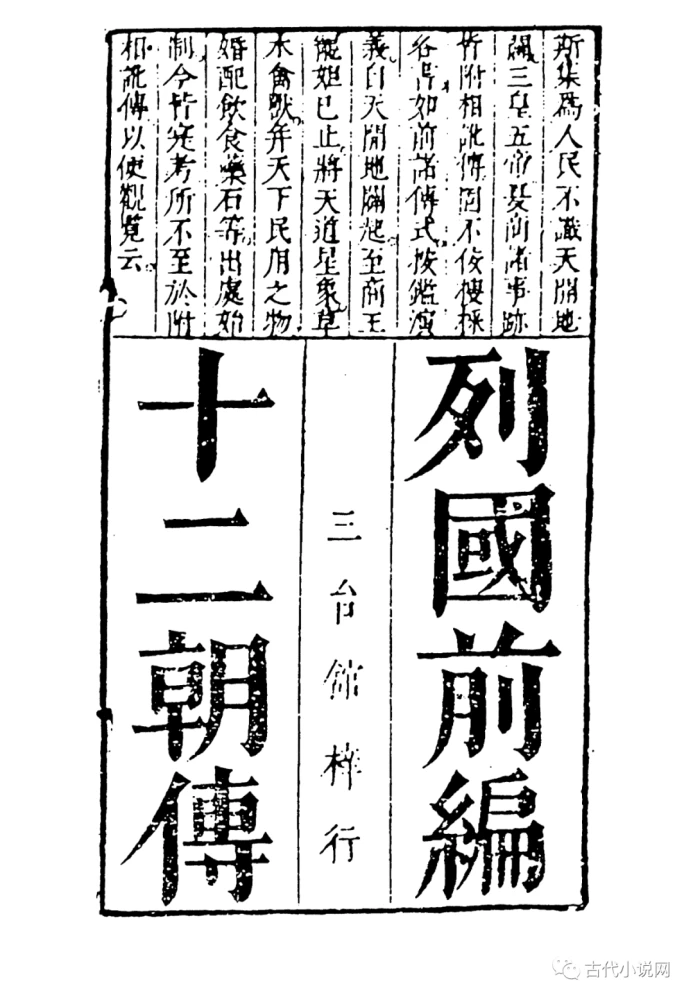 斯集為人民不識天開地
闢三皇五帝夏商諸事跡
皆附相訛傳固不佞搜採
各書如前諸傳式按鑑演
義自天開地闢起至商王
寵妲己止將天道星象草
木禽獸并天下民用之物
婚配飲食藥石等出處始
制今皆寔考所不至於附
相訛傳以便觀覽云
列國前編
三台館梓行
十二朝傳
古代小说网